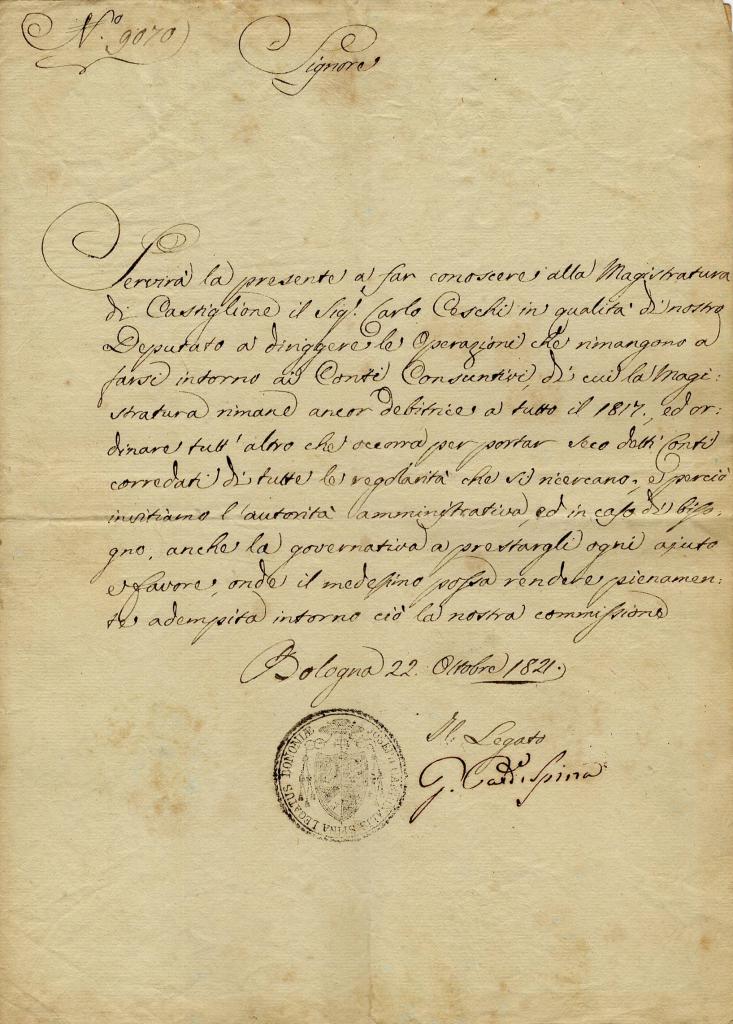 N.º 9070
Signore
Servirà la presente a far conoscere alla Magistratura
di Castiglione il Sig.r Carlo Ceschi in qualità di nostro
Deputato a diriggere le Operazioni che rimangono a
farsi intorno ai Conti Consuntivi, di cui la Magi:
stratura rimane ancor debitrice a tutto il 1817., ed or:
dinare tutt' altro che occorra per portar seco detti Conti
corredati di tutte le regolarità che si ricercano; e perciò
invitiamo l'autorità amministrativa, ed in caso di biso:
gno, anche la governativa a prestargli ogni ajuto
e favore, onde il medesimo possa rendere pienamen:
te adempita intorno ciò la nostra commissione
Bologna 22. Ottobre 1821.
Il Legato
G. Card. Spina
JOSEPH CARDINALIS SPINA LEGATUS BONONIÆ